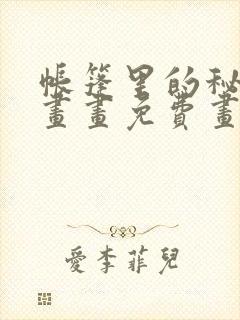 帳篷里的秘
畫畫免費畫
愛李菲兒